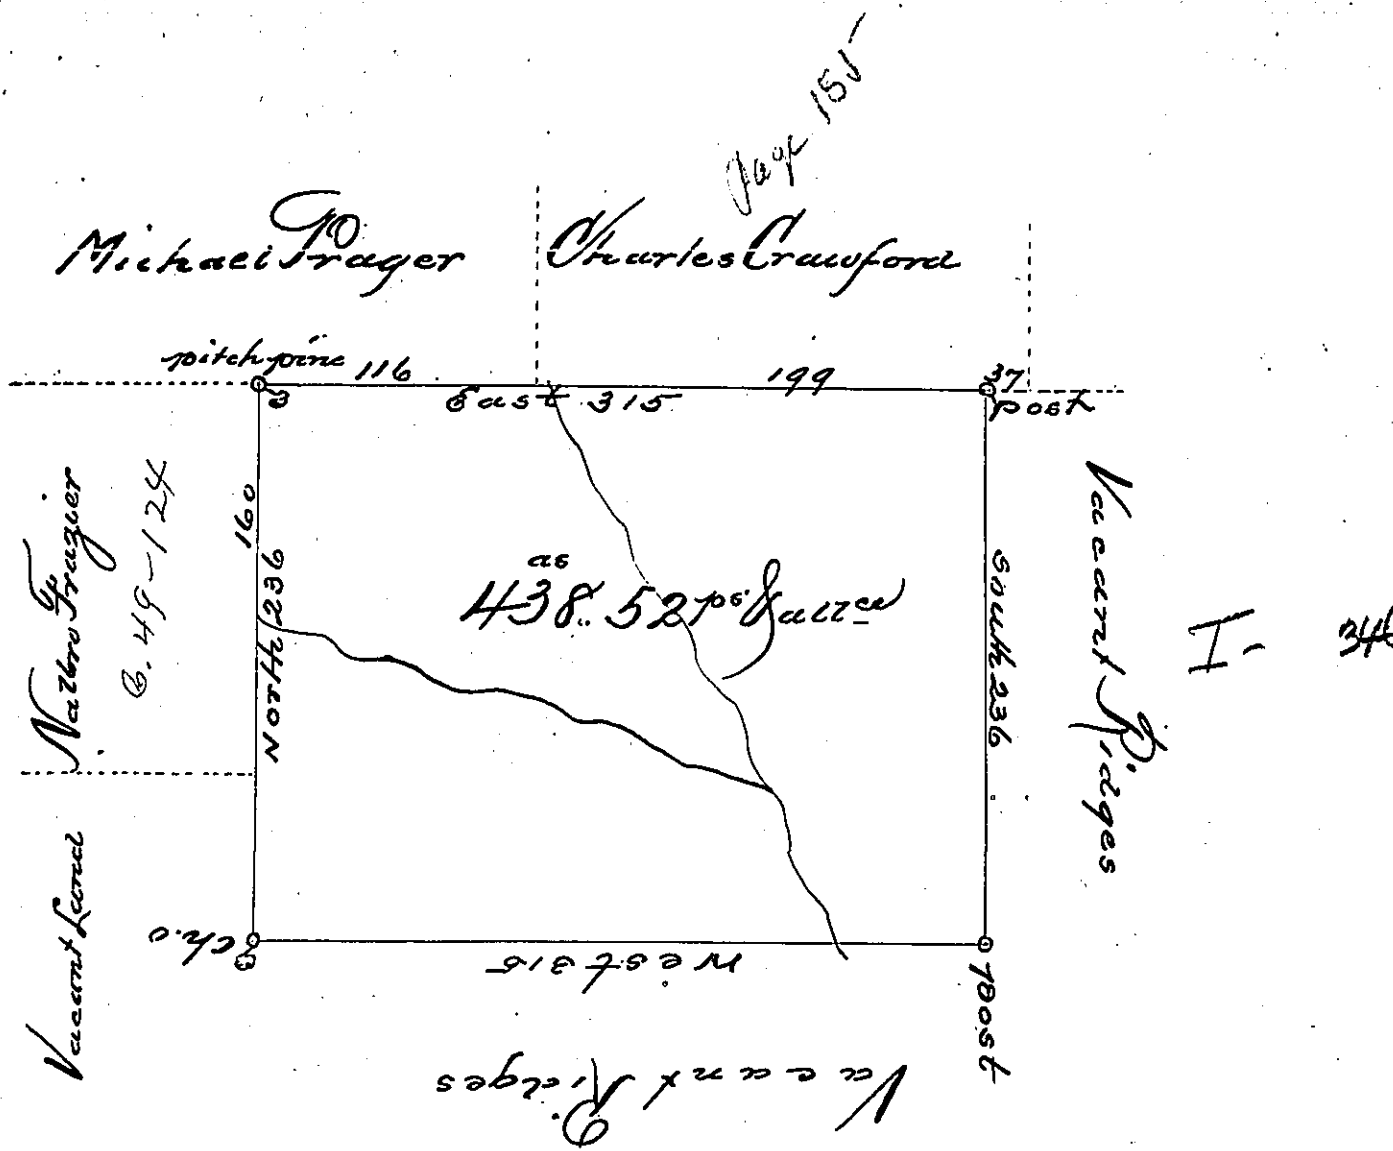 Page 155
Michael Prager
Charles Crawford
pitch pine
116
199
37
3
East 315
post
160
North 236
Nalbro Frazier
G. 49-124
as
438.. 52 ps. & allce
South 236
Vacant Ridges
I-
Vacant Land
ch. o
3
West 315
Post
Vacant Ridges